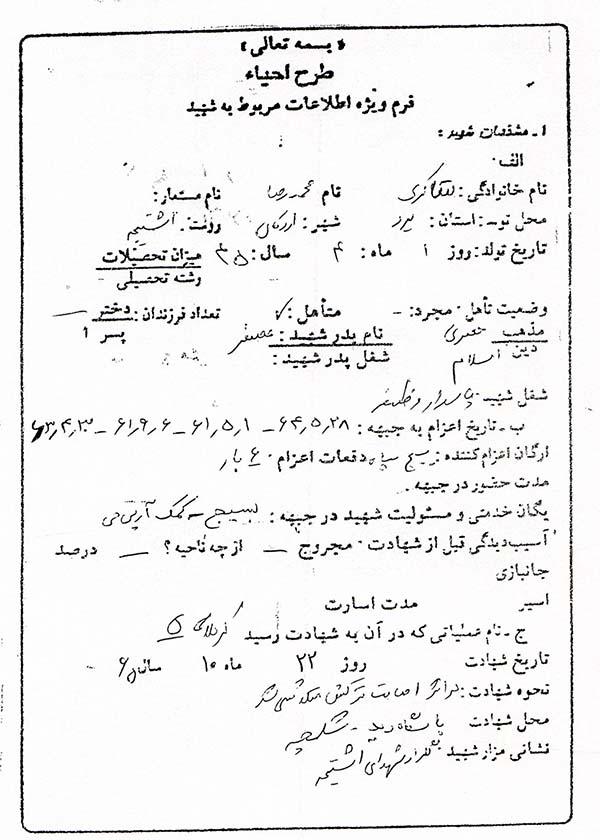 « بسمه تعالی »
طرح احیاء
فرم ویژه اطلاعات مربوط به شهید
۱ـ مشخصات شهید :
الف ۰
نام خانوادگی : نام محمدرضا نام مستعار :
محل تولد : استان : یزد شهر : اردکان روستا
تاریخ تولد : روز ۱ ماه : ۴ سال : ۳۵ میزان تحصیلات
رشته تحصیلی
وضعیت تأهل ۰ مجرد : ـ متأهل : ✓ تعداد فرزندان : دختر ـ
پسر ۱
مذهب جعفری نام پدر شهید :
دین اسلام شغل پدر شهید :
شغل شهید ۰ پاسدار وظیفه
ب ـ تاریخ اعزام به جبهه : ۶۴٫۵٫۲۸ ـ ۶۱٫۵٫۱ ـ ۶۱٫۹٫۶ ـ
ارگان اعزام کننده : بسیج سپاه دفعات اعزام ۰ ۶ بار
مدت حضور در جبهه .
یگان خدمتی و مسئولیت شهید در جبهه : بسیج - کمک آرپی جی
آسیب دیدگی قبل از شهادت ۰ مجروح ـ از چه ناحیه ؟ ـ درصد
جانبازی
اسیر مدت اسارت
ج ـ نام عملیاتی که در آن به شهادت رسید کربلای ۵
تاریخ شهادت روز ۲۲ ماه ۱۰ سال
نحوه شهادت : براثر اصابت ترکش
محل شهادت پاسگاه زید - شلمچه
نشانی مزار شهید گلزار شهدای